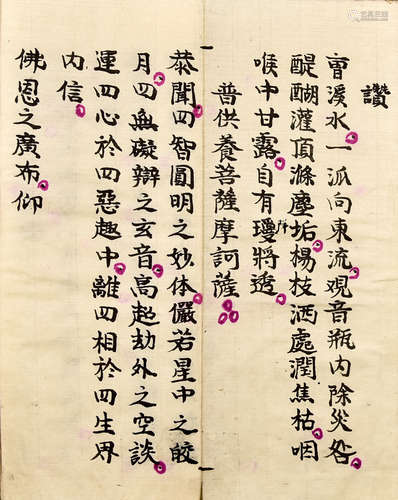 讚
曺溪水一派向東流觀音瓶内除灾咎
醍醐灌頂滌塵垢楊枝洒處潤焦枯咽
喉中甘露自有瓊將透
普供養菩薩摩訶薩
恭聞四智圓明之妙体儼若星中之皎
月四無礙辯之玄音高超劫外之空談
運四心於四惡趣中離四相於四生界
内信
佛恩之廣布仰